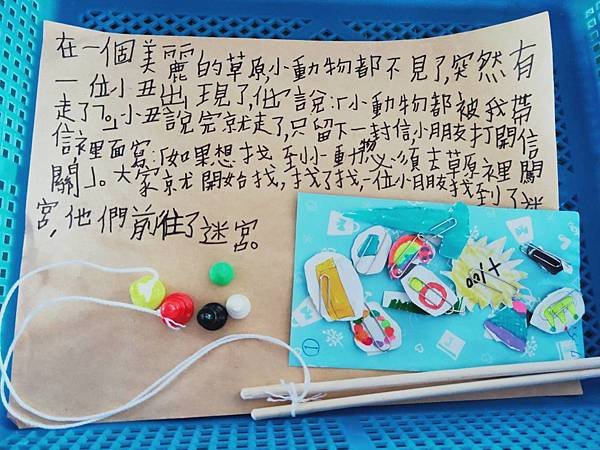 在一個美麗的草原小動物都不見了,突然有
一位小丑出現了,他說:「小動物都被我帶
走了。」小丑說完就走了,只留下一封信,小朋友打開信
信,裡面寫:「如果想找到小動物必須去草原裡闖
關」。大家就開始找,找了找,一位小朋友找到了迷
宮,他們前往了迷宮。
+100
①